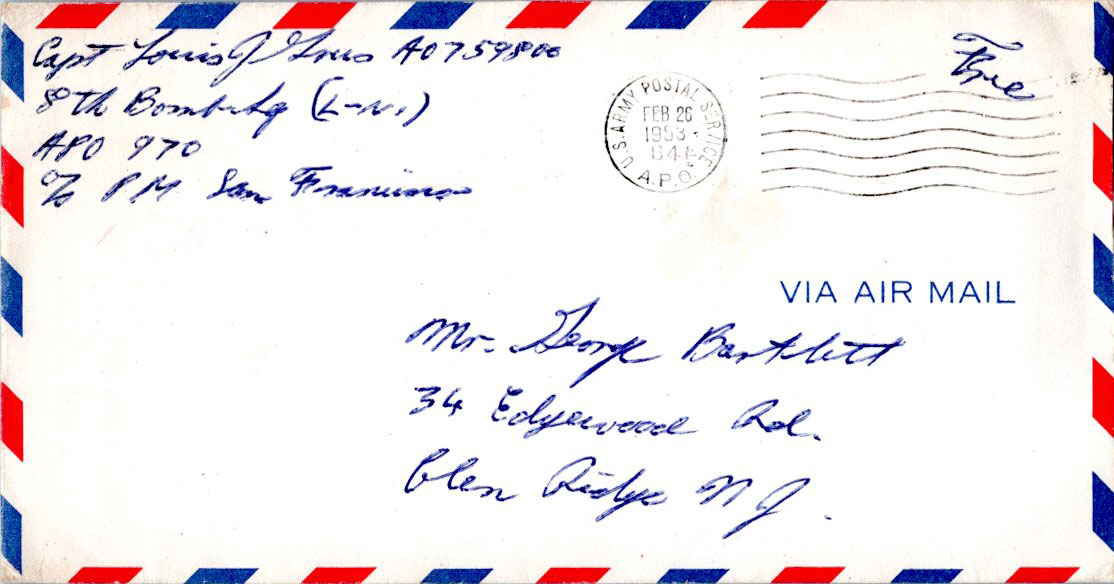 Capt Louis J Gries AO759800
8th Bomb Sq (L-N.I)
APO 970
c/o P M San Francisco
Free
U.S. ARMY POSTAL SERVICE
FEB 26
1953
A.P.O.
VIA AIR MAIL
Mr. George Bartlett
34 Edgewood Rd.
Glen Ridge N J.